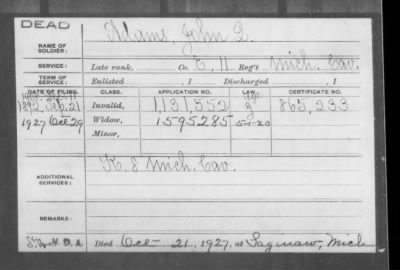 DEAD
NAME OF SOLDIER: Adams, John Q.
SERVICE: Late rank, Co. E, 11 Reg't Mich. Cav.
TERM OF SERVICE: Enlisted , 1 Discharged , 1
DATE OF FILING. CLASS. APPLICATION NO. LAW. CERTIFICATE NO.
1892 21 Invalid, 1,131,552 age 865,233
1927 Oct 29 Widow, 1595285 5-1-20
Minor,
ADDITIONAL SERVICES: K. 8 Mich. Cav.
REMARKS:
D. A. Died Oct 21, 1927, at Saginaw, Mich